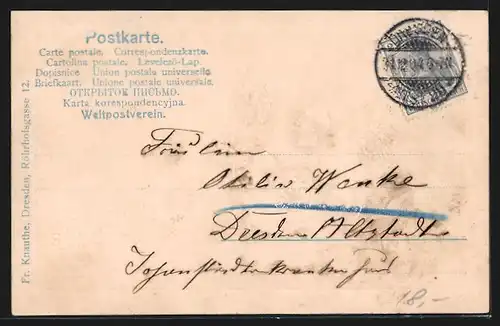 Postkarte.
Carte postale. Correspondenzkarte.
Cartolina postale. Levelező-Lap.
Dopisnice Union postale universelle
Briefkaart. Unione postale universale.
ОТКРЫТОЕ ПИСЬМО.
Karta korespondencyjna.
Weltpostverein.
DRESDEN
.12.04.6-7N
Fr. Knauthe, Dresden, Röhrhofsgasse 12.
Fräulein
Otilie Wanke
Dresden Altstadt
18,-